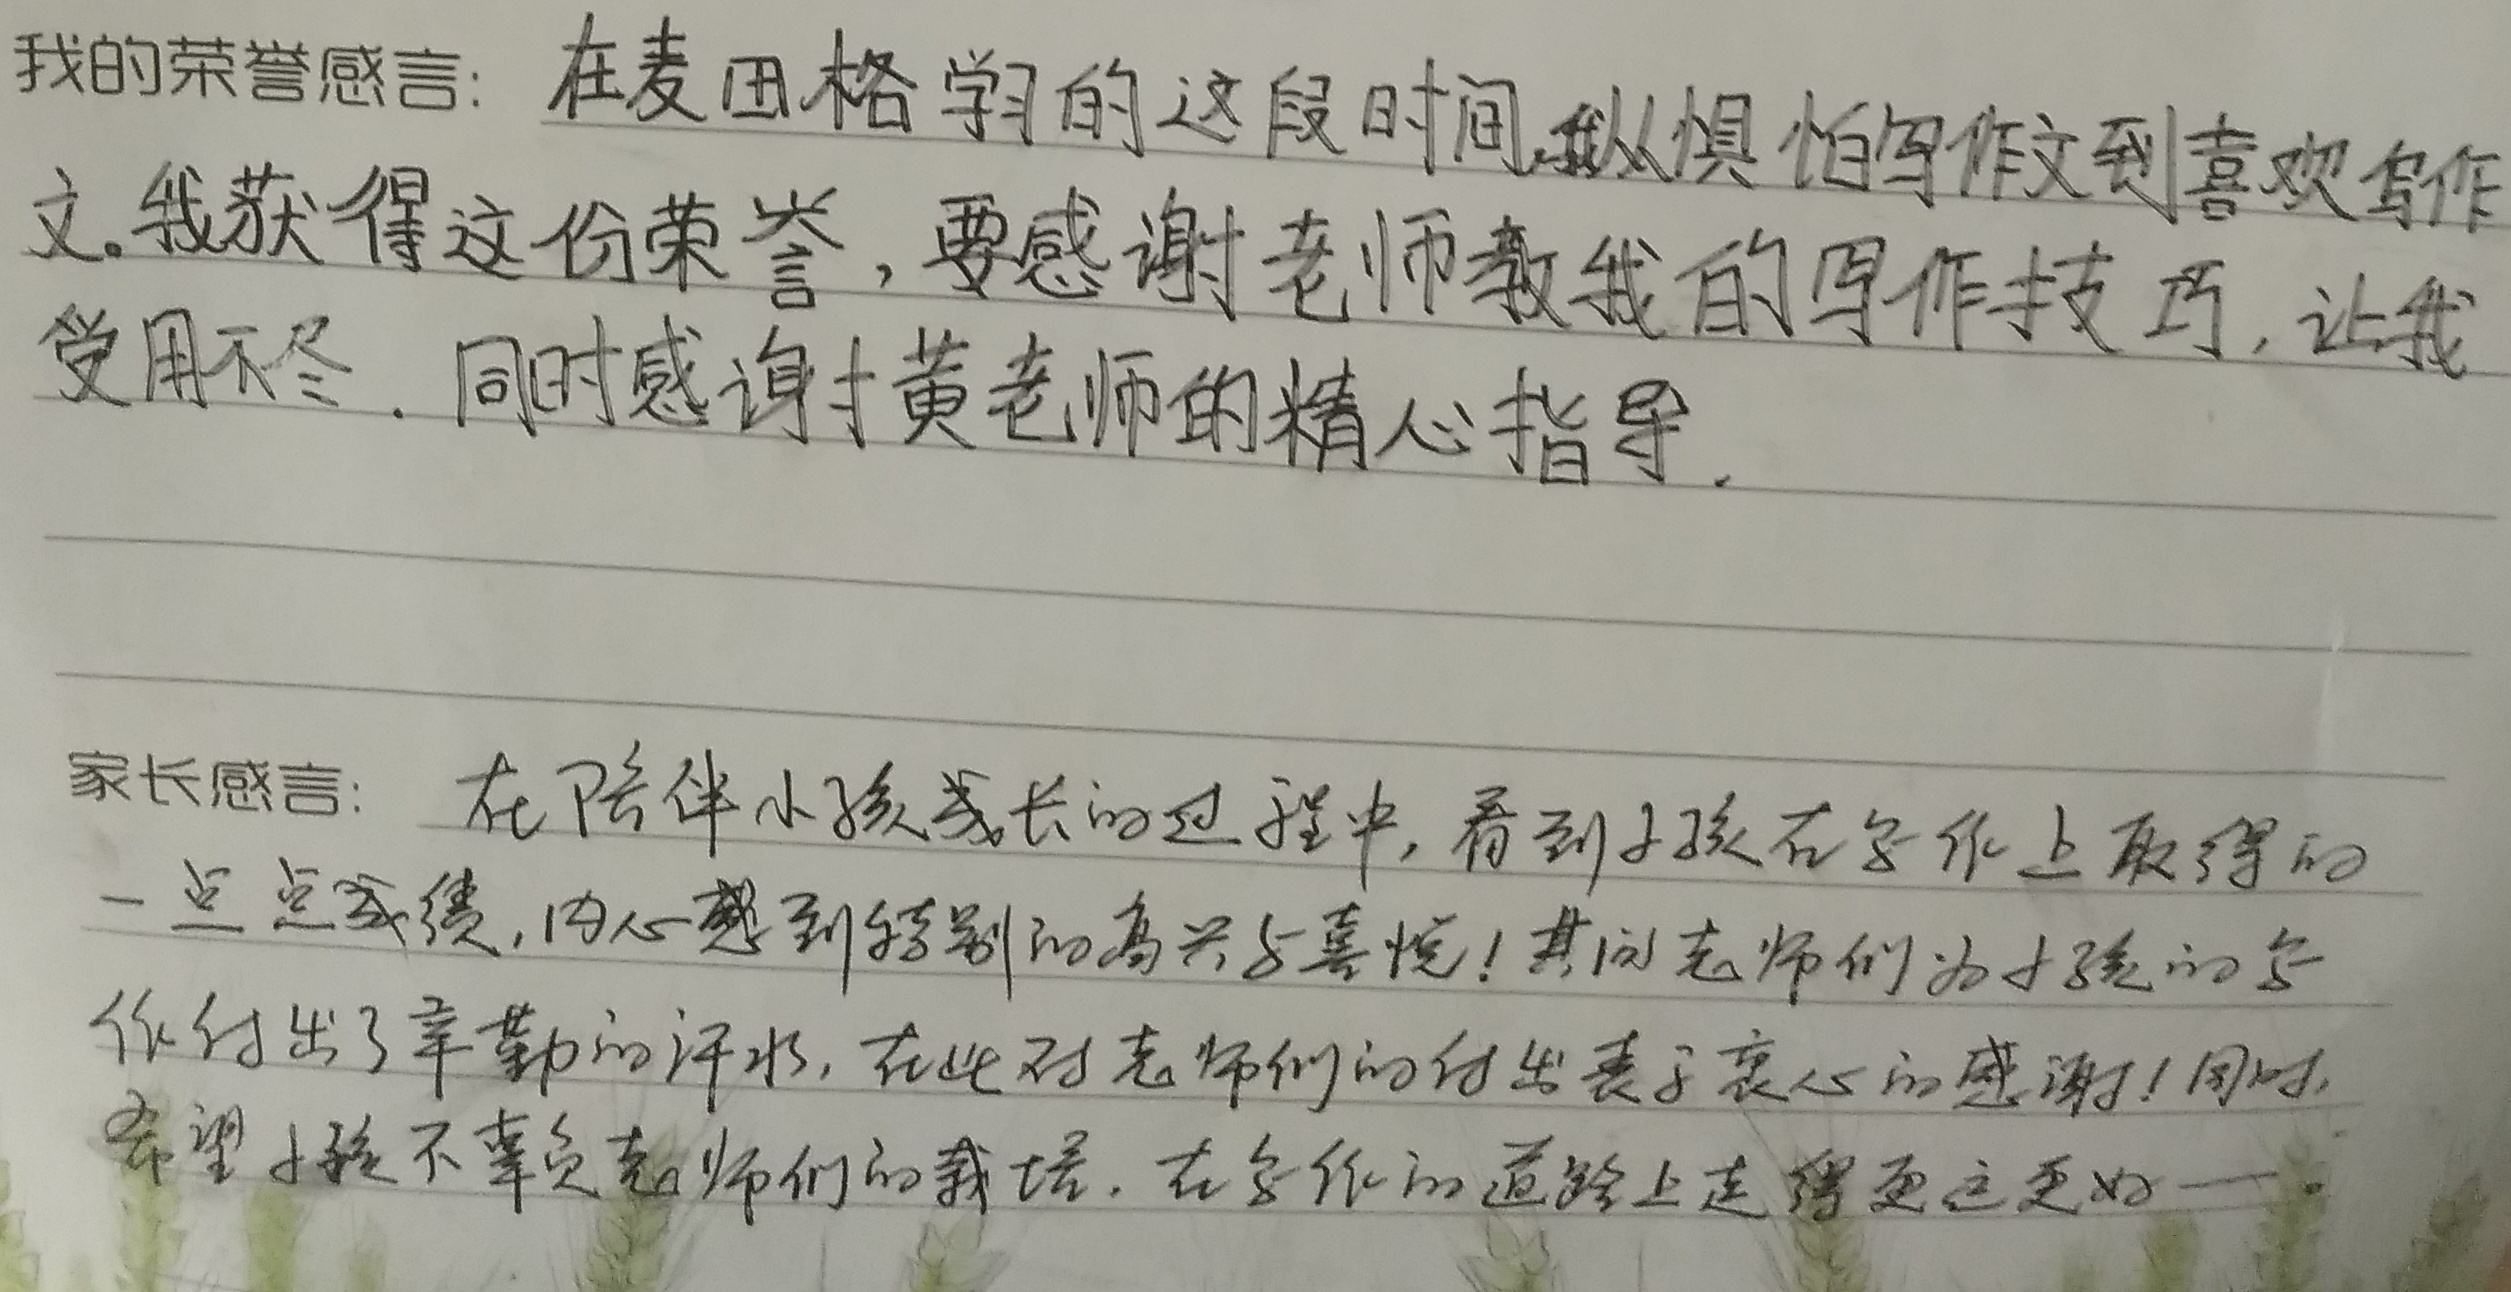 我的荣誉感言：在麦田格学习的这段时间,我从惧怕写作文到喜欢写作
文。我获得这份荣誉，要感谢老师教我的写作技巧，让我
受用不尽．同时感谢黄老师的精心指导．
家长感言：在陪伴小孩成长的过程中，看到小孩在写作上取得的
一点点成绩，内心感到特别的高兴与喜悦！其间老师们为小孩的写
作付出了辛勤的汗水，在此对老师们的付出表示衷心的感谢！同时，
希望小孩不辜负老师们的栽培．在写作的道路上走得更远更好——。